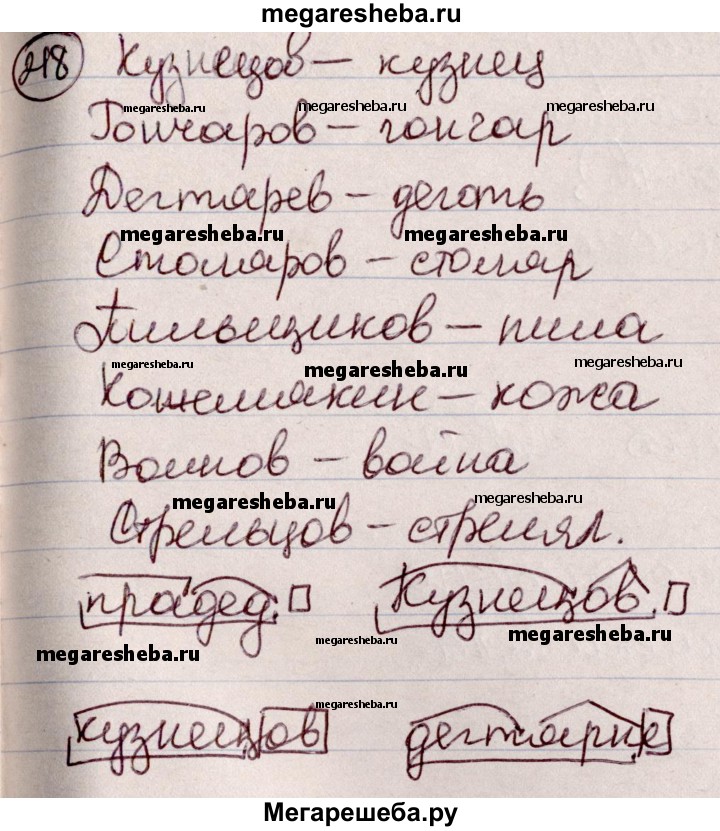 megaresheba.ru
218 Кузнецов – кузнец
megaresheba.ru megaresheba.ru megaresheba.ru
Гончаров – гончар
Дегтярев – деготь
megaresheba.ru megaresheba.ru
Столяров – столяр
Пильщиков – пила
megaresheba.ru megaresheba.ru megaresheba.ru
Кожемякин – кожа
Воинов – война
megaresheba.ru megaresheba.ru
Стрельцов – стрелял.
прадед Кузнецов
megaresheba.ru megaresheba.ru megaresheba.ru
megaresheba.ru
кузнецов дегтярни
Мегарешеба.ру